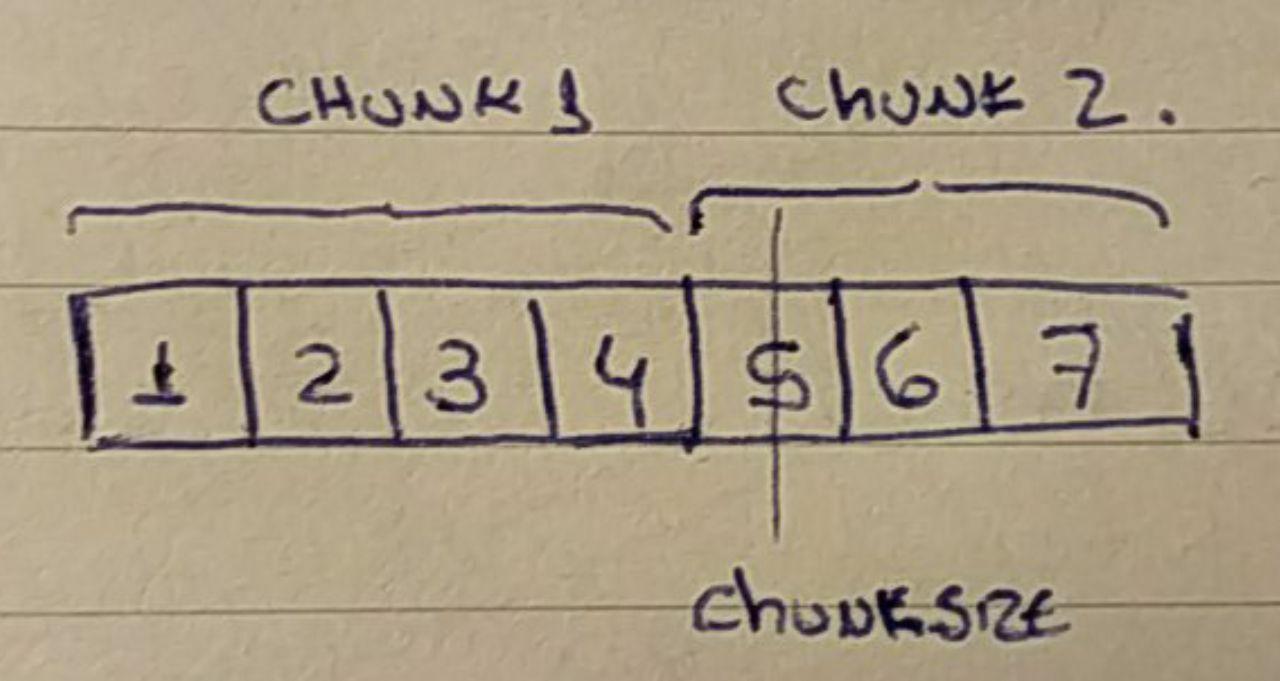 CHUNK 1 ChUNK 2.
1 2 3 4 5 6 7
ChUNKSIZE